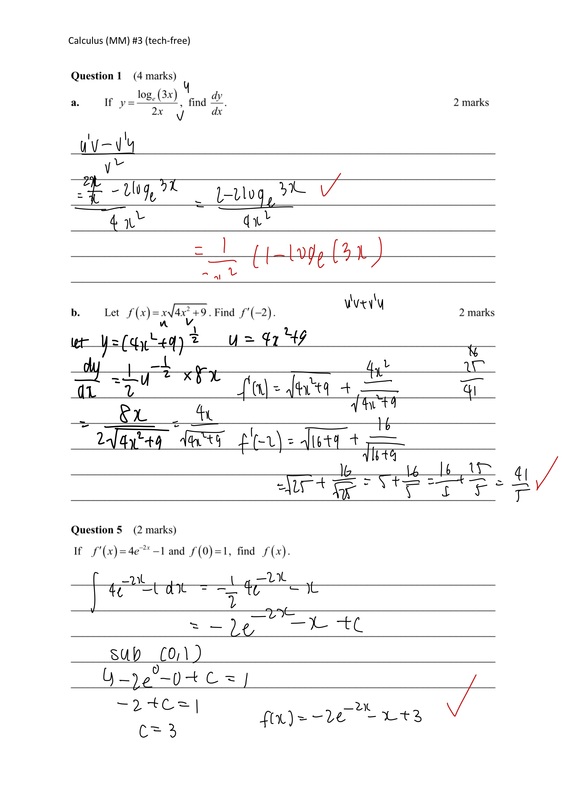 Calculus (MM) #3 (tech-free)
Question 1 (4 marks)
a. If y = log_e(3x) / 2x, find dy/dx. 2 marks
u
v
(u'v - v'u) / v²
= (2x/x - 2log_e 3x) / 4x² = (2-2log_e 3x) / 4x² ✓
= 1/2x² (1-log_e(3x)
b. Let f(x) = x√(4x²+9). Find f'(-2). 2 marks
u v
u'v+v'u
let y=(4x²+9)^(1/2) u = 4x²+9
dy/dx = 1/2 u^(-1/2) × 8x
= 8x / 2√(4x²+9) = 4x / √(4x²+9)
f'(x) = √(4x²+9) + 4x² / √(4x²+9)
f'(-2) = √(16+9) + 16 / √(16+9)
= √25 + 16/√25 = 5 + 16/5 = 16/5 + 25/5 = 41/5 ✓
16
25
41
Question 5 (2 marks)
If f'(x) = 4e^(-2x) - 1 and f(0) = 1, find f(x).
∫ 4e^(-2x) - 1 dx = -1/2 4e^(-2x) - x
= -2e^(-2x) - x + c
sub (0,1)
-2e^0 - 0 + c = 1
-2 + c = 1
c = 3
f(x) = -2e^(-2x) - x + 3 ✓